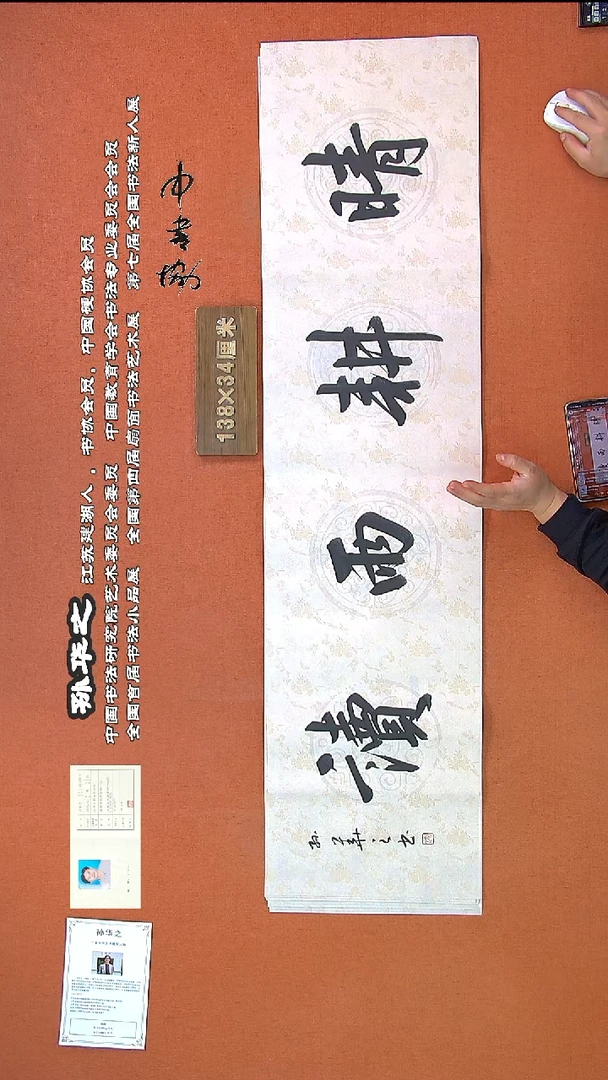 孙华之 江苏建湖人，书协会员，中国硬协会员
中国书法研究院艺术委员会委员 中国教育学会书法专业委员会会员
全国首届书法小品展 全国第四届扇面书法艺术展 第七届全国书法新人展
138×34厘米
晴耕雨讀
孙華之书